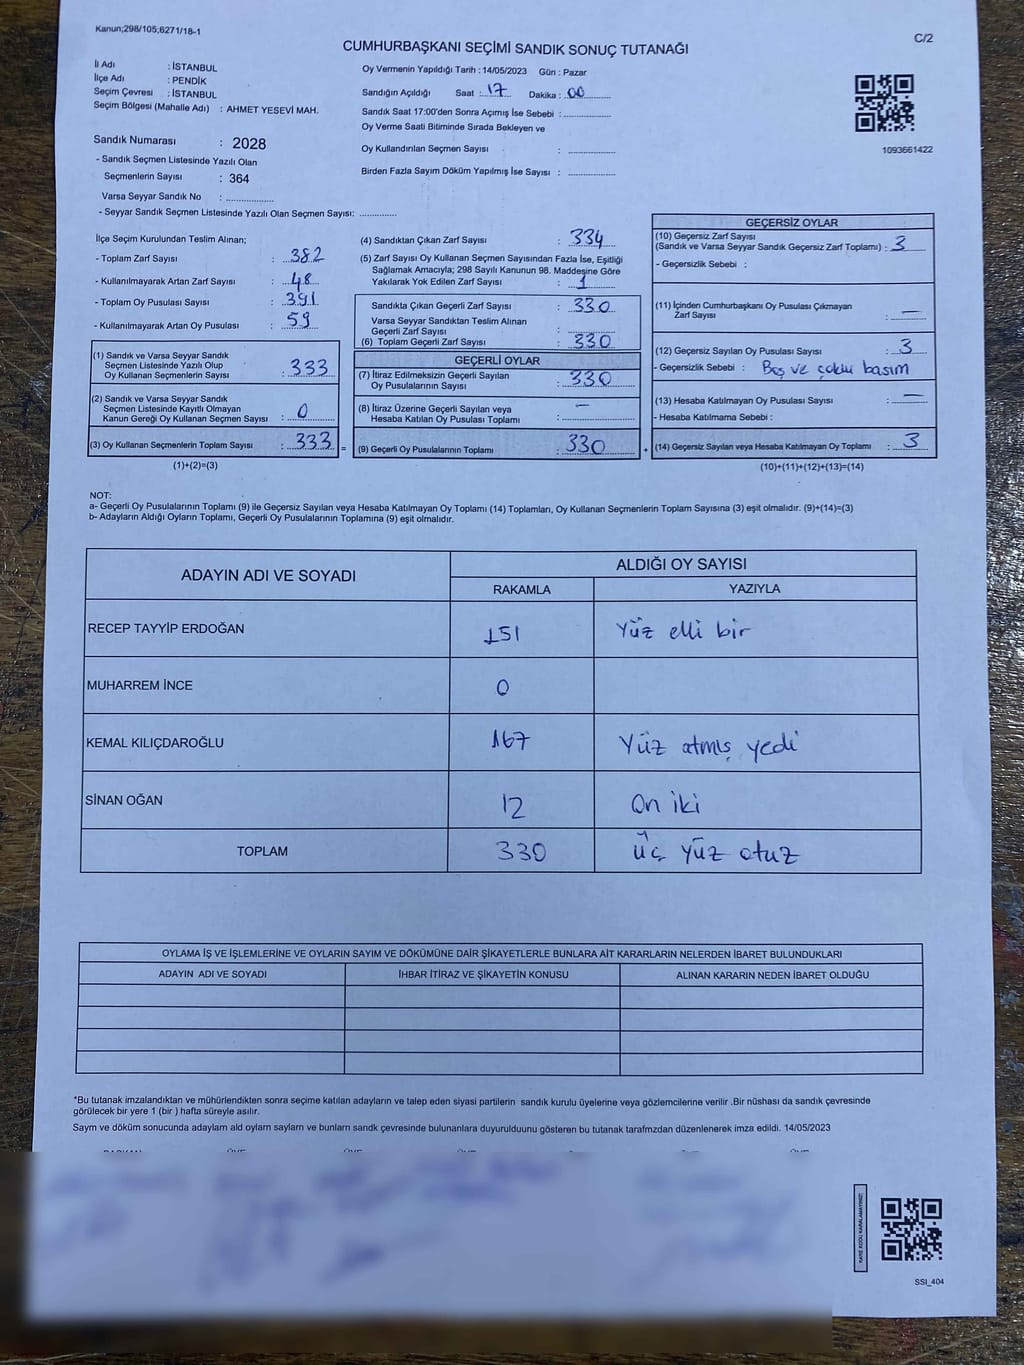 Kanun;298/105;6271/18-1
C/2
CUMHURBAŞKANI SEÇİMİ SANDIK SONUÇ TUTANAĞI
İl Adı : İSTANBUL
İlçe Adı : PENDİK
Seçim Çevresi : İSTANBUL
Seçim Bölgesi (Mahalle Adı) : AHMET YESEVİ MAH.
Sandık Numarası : 2028
- Sandık Seçmen Listesinde Yazılı Olan
Seçmenlerin Sayısı : 364
Varsa Seyyar Sandık No : ................
- Seyyar Sandık Seçmen Listesinde Yazılı Olan Seçmen Sayısı: ............
Oy Vermenin Yapıldığı Tarih : 14/05/2023 Gün : Pazar
Sandığın Açıldığı Saat : 17 Dakika : 00
Sandık Saat 17:00'den Sonra Açımış İse Sebebi : ................
Oy Verme Saati Bitiminde Sırada Bekleyen ve
Oy Kullandırılan Seçmen Sayısı : ................
Birden Fazla Sayım Döküm Yapılmış İse Sayısı : ................
1093661422
İlçe Seçim Kurulundan Teslim Alınan;
- Toplam Zarf Sayısı : 382
- Kullanılmayarak Artan Zarf Sayısı : 48
- Toplam Oy Pusulası Sayısı : 391
- Kullanılmayarak Artan Oy Pusulası : 59
(1) Sandık ve Varsa Seyyar Sandık
Seçmen Listesinde Yazılı Olup
Oy Kullanan Seçmenlerin Sayısı : 333
(2) Sandık ve Varsa Seyyar Sandık
Seçmen Listesinde Kayıtlı Olmayan
Kanun Gereği Oy Kullanan Seçmen Sayısı : 0
(3) Oy Kullanan Seçmenlerin Toplam Sayısı : 333 =
(1)+(2)=(3)
(4) Sandıktan Çıkan Zarf Sayısı : 334
(5) Zarf Sayısı Oy Kullanan Seçmen Sayısından Fazla İse, Eşitliği
Sağlamak Amacıyla; 298 Sayılı Kanunun 98. Maddesine Göre
Yakılarak Yok Edilen Zarf Sayısı : 1
Sandıkta Çıkan Geçerli Zarf Sayısı : 330
Varsa Seyyar Sandıktan Teslim Alınan
Geçerli Zarf Sayısı :
(6) Toplam Geçerli Zarf Sayısı : 330
GEÇERLİ OYLAR
(7) İtiraz Edilmeksizin Geçerli Sayılan
Oy Pusulalarının Sayısı : 330
(8) İtiraz Üzerine Geçerli Sayılan veya
Hesaba Katılan Oy Pusulası Toplamı : —
(9) Geçerli Oy Pusulalarının Toplamı : 330 +
GEÇERSİZ OYLAR
(10) Geçersiz Zarf Sayısı
(Sandık ve Varsa Seyyar Sandık Geçersiz Zarf Toplamı) : 3
- Geçersizlik Sebebi :
(11) İçinden Cumhurbaşkanı Oy Pusulası Çıkmayan
Zarf Sayısı : —
(12) Geçersiz Sayılan Oy Pusulası Sayısı : 3
- Geçersizlik Sebebi : Boş ve çoklu basım
(13) Hesaba Katılmayan Oy Pusulası Sayısı : —
- Hesaba Katılmama Sebebi :
(14) Geçersiz Sayılan veya Hesaba Katılmayan Oy Toplamı : 3
(10)+(11)+(12)+(13)=(14)
NOT:
a- Geçerli Oy Pusulalarının Toplamı (9) ile Geçersiz Sayılan veya Hesaba Katılmayan Oy Toplamı (14) Toplamları, Oy Kullanan Seçmenlerin Toplam Sayısına (3) eşit olmalıdır. (9)+(14)=(3)
b- Adayların Aldığı Oyların Toplamı, Geçerli Oy Pusulalarının Toplamına (9) eşit olmalıdır.
ADAYIN ADI VE SOYADI
ALDIĞI OY SAYISI
RAKAMLA YAZIYLA
RECEP TAYYİP ERDOĞAN 151 Yüz elli bir
MUHARREM İNCE 0
KEMAL KILIÇDAROĞLU 167 Yüz atmış yedi
SİNAN OĞAN 12 On iki
TOPLAM 330 üç yüz otuz
OYLAMA İŞ VE İŞLEMLERİNE VE OYLARIN SAYIM VE DÖKÜMÜNE DAİR ŞİKAYETLERLE BUNLARA AİT KARARLARIN NELERDEN İBARET BULUNDUKLARI
ADAYIN ADI VE SOYADI İHBAR İTİRAZ VE ŞİKAYETİN KONUSU ALINAN KARARIN NEDEN İBARET OLDUĞU
*Bu tutanak imzalandıktan ve mühürlendikten sonra seçime katılan adayların ve talep eden siyasi partilerin sandık kurulu üyelerine veya gözlemcilerine verilir .Bir nüshası da sandık çevresinde
görülecek bir yere 1 (bir ) hafta süreyle asılır.
Sayım ve döküm sonucunda adaylam ald oylam saylam ve bunlarn sandk çevresinde bulunanlara duyurulduunu gösteren bu tutanak tarafmzdan düzenlenerek imza edildi. 14/05/2023
SSI_404